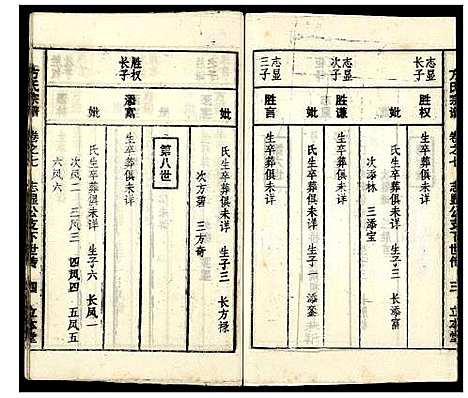 方氏宗谱 卷之七 志显公支下世传 三 立本堂
志显
次子
胜权
生卒葬俱未详
妣
氏生卒葬俱未详 生子三 长添富
次添林 三添宝
胜谦
生卒葬俱未详
妣
氏生卒葬俱未详 生子一 添銮
志显
三子
胜言
生卒葬俱未详
妣
氏生卒葬俱未详 生子三 长方禄
次方碧 三方奇
第八世
胜权
长子
添富
生卒葬俱未详
妣
氏生卒葬俱未详 生子六 长凤一
次凤二 三凤三 四凤四 五凤五
六凤六
方氏宗谱 卷之七 志显公支下世传 四 立本堂